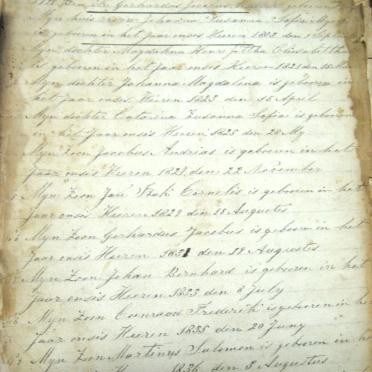 Gerhardus Jacobus
Myn huis vrow Johanna Susanna Sofia
is geboren in het jaar onses Heeren 1802 den
Myn dochter Magdalena Henrjettha
is geboren in het Jaar onses Heeren 1821 den 15
Myn dochter Johanna Magdalena is geboren in
het jaar onses Heeren 1823 den 15 April
Myn dochter Catarina Susanna Sofia is geboren
in het Jaar onsis Heeren 1825 den 28 My
Myn Zoon Jacobus Andrias is geboren in het
Jaar onsis Heeren 1827 den 22 November
Myn Zoon Jan Cornelis is geboren in het
Jaar onsis Heeren 1829 den 15 Augustes
Myn Zoon Gerhardus Jacobus is geboren in het
Jaar onsis Heeren 1831 den 18 Augustes
Myn Zoon Johan Bernhard is geboren in het
Jaar onsis Heeren 1833 den 6 July
Myn Zoon Coenraad Frederik is geboren in he
Jaar onsis Heeren 1835 den 20 Juny
Myn Zoon Martinys Salomon is geboren in he
Heeren 1836 den 8 Augustus